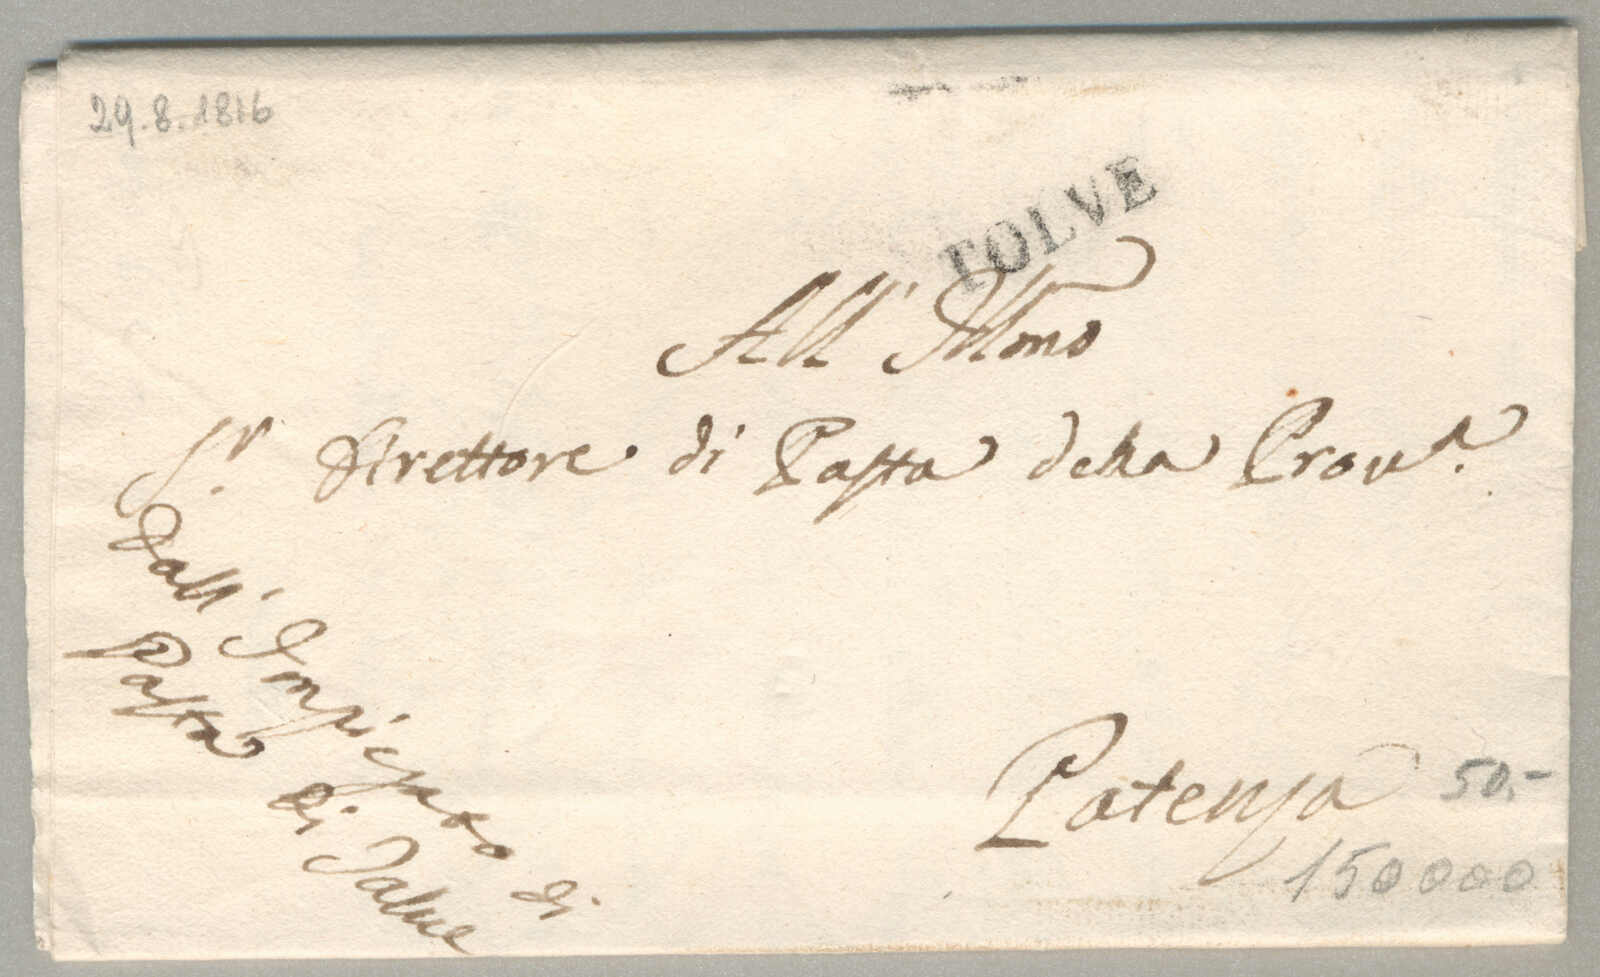 29.8.1816
TOLVE
All' Illmo
Sr. Direttore di Posta della Prova.
Dall' Impiegato di
Posta di Tolve
Potenza
50,-
150000